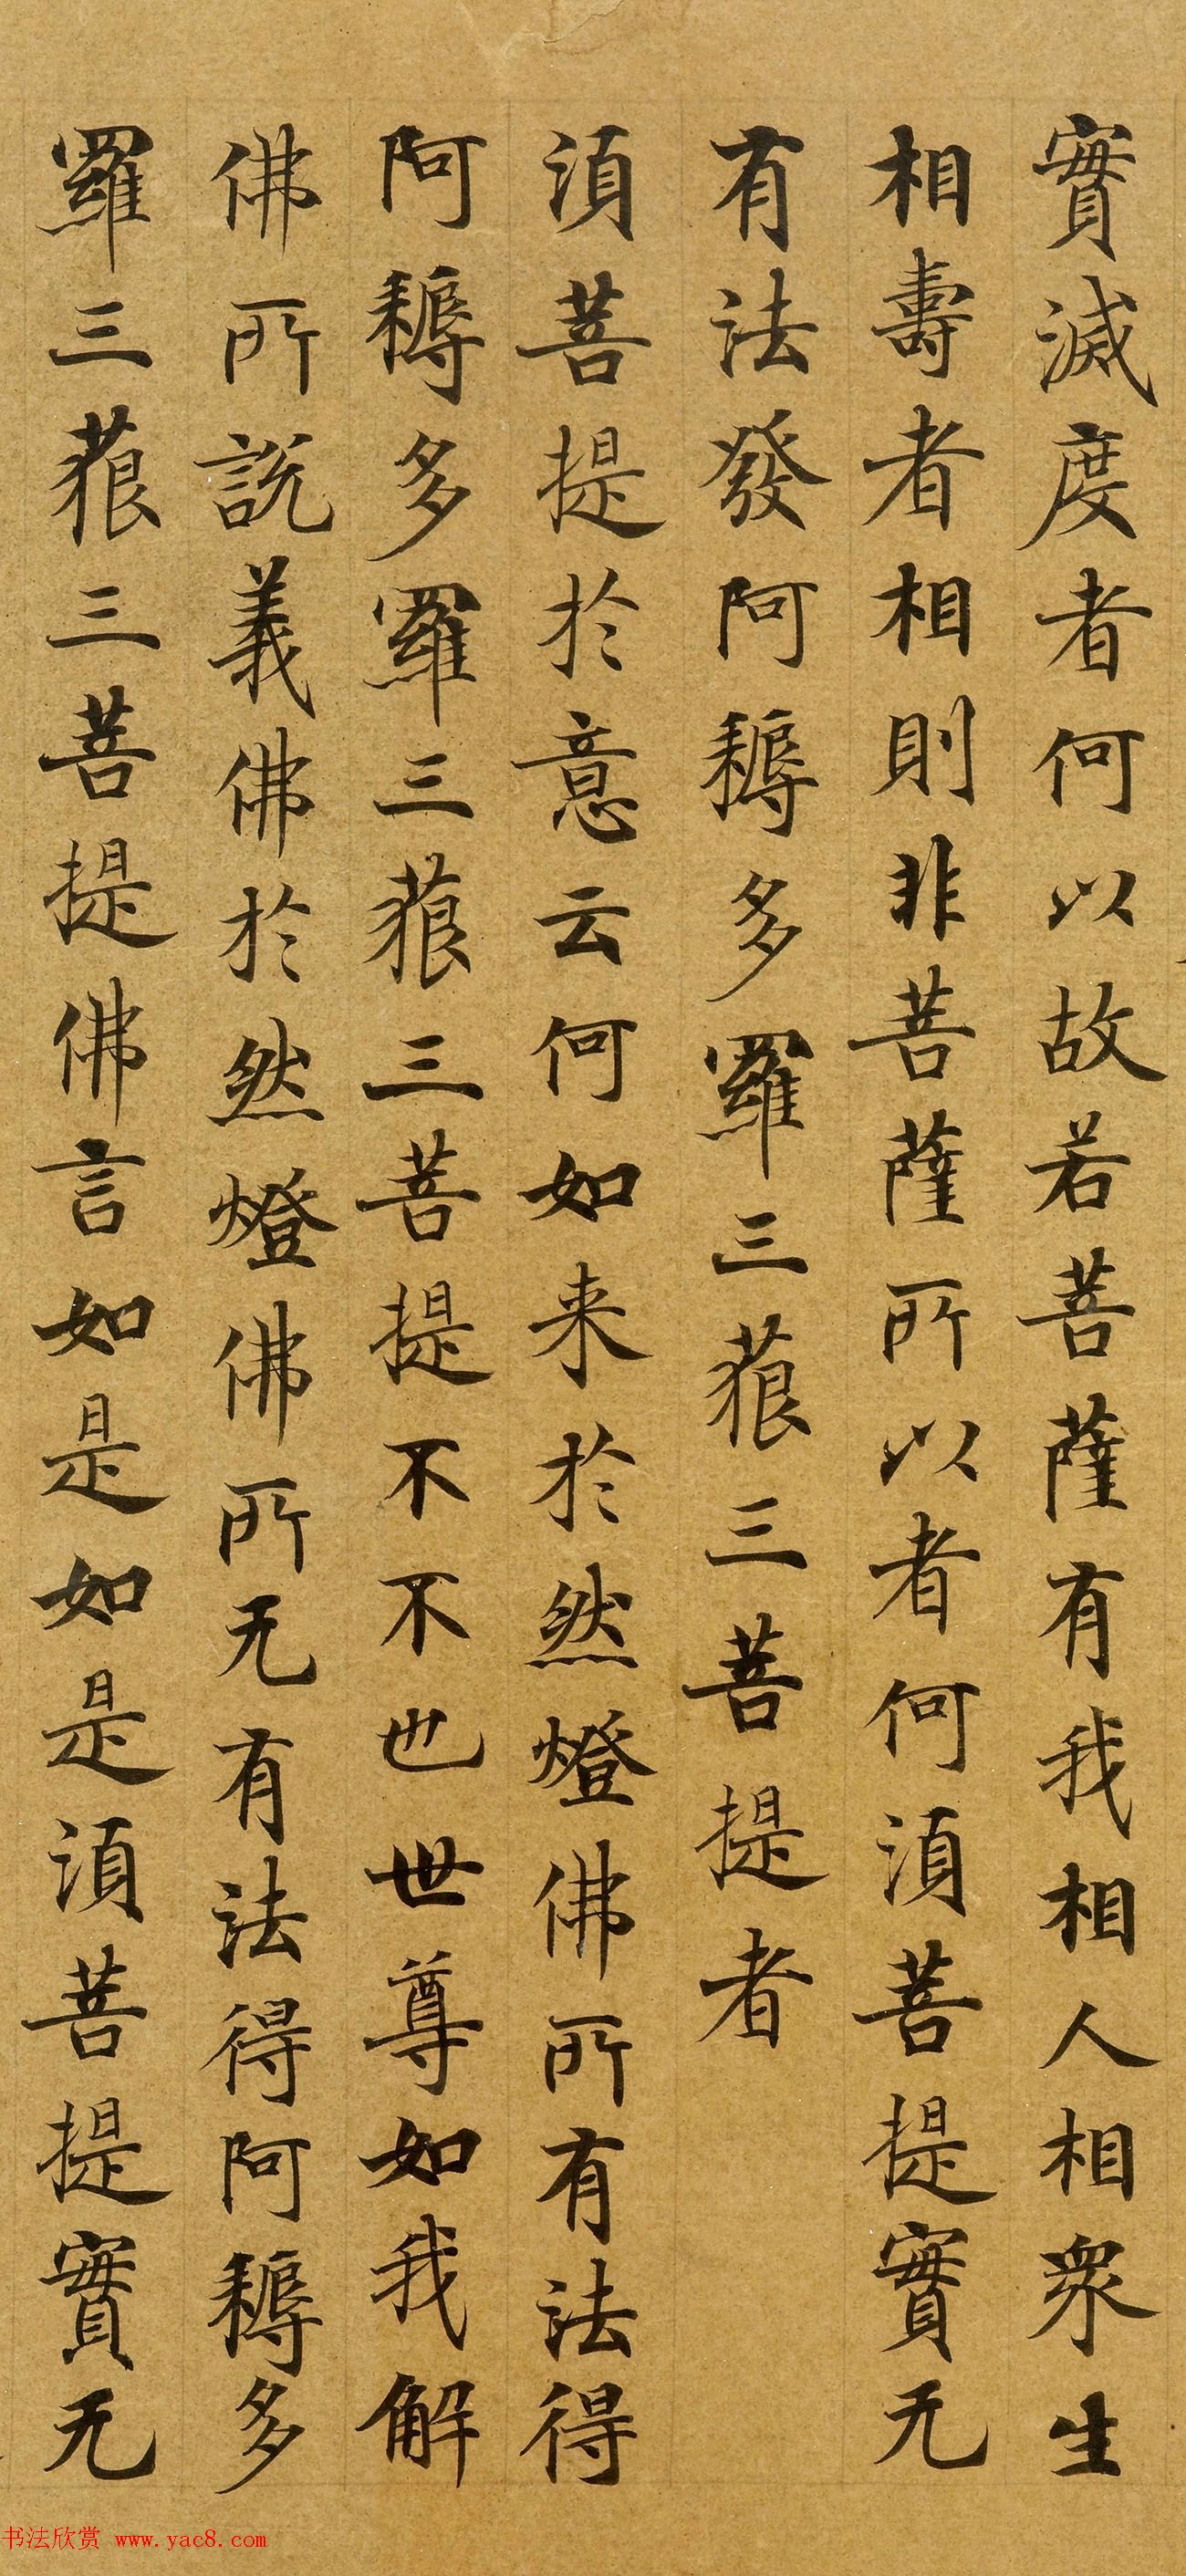 實滅度者何以故若菩薩有我相人相衆生
相壽者相則非菩薩所以者何須菩提實无
有法發阿耨多羅三藐三菩提者
須菩提於意云何如来於然燈佛所有法得
阿耨多羅三藐三菩提不不也世尊如我解
佛所說義佛於然燈佛所无有法得阿耨多
羅三藐三菩提佛言如是如是須菩提實无
书法欣赏 www.yac8.com